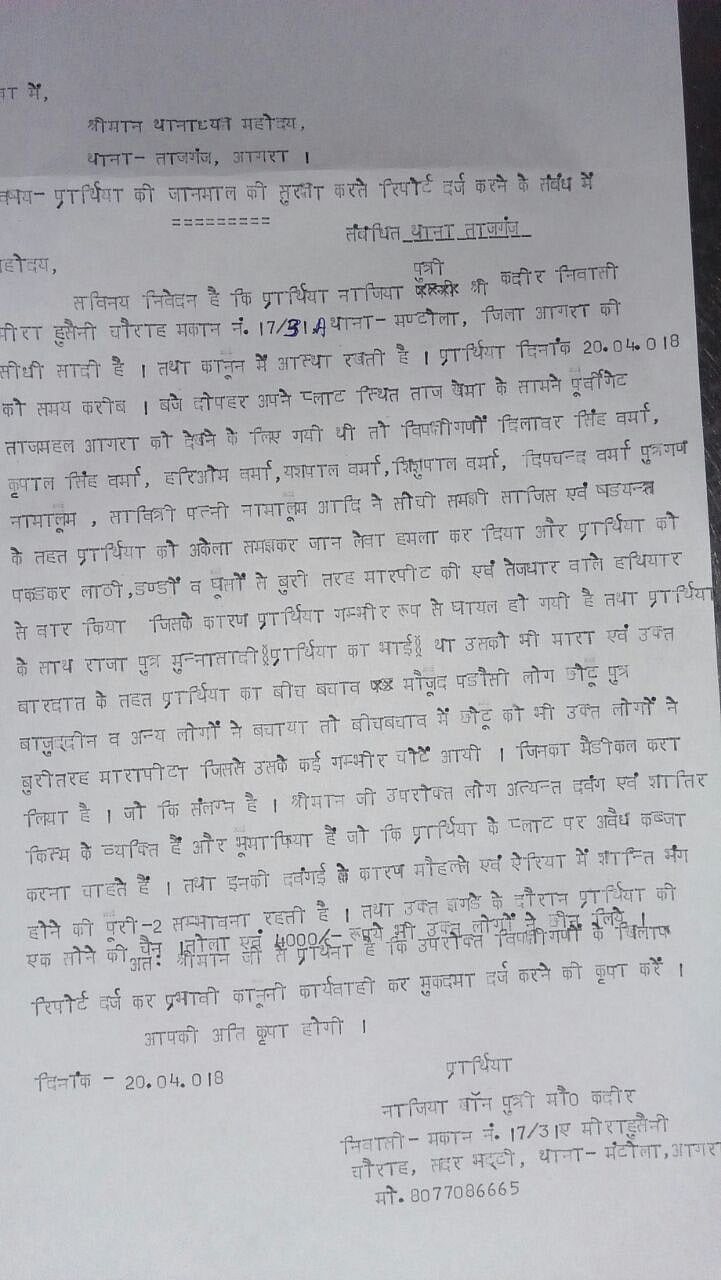 वा में,
श्रीमान थानाध्यक्ष महोदय,
थाना- ताजगंज, आगरा ।
वषय- प्रार्थिया की जानमाल की सुरक्षा करते रिपोर्ट दर्ज करने के संबंध में
=========
संबंधित थाना ताजगंज
महोदय,
पुत्री
सविनय निवेदन है कि प्रार्थिया नाजिया श्री कदीर निवासी
मीरा हुसैनी चौराह मकान नं. 17/31A थाना- मण्टोला, जिला आगरा की
सीधी सादी है । तथा कानून में आस्था रखती है । प्रार्थिया दिनांक 20.04.018
को समय करीब । बजे दोपहर अपने प्लाट स्थित ताज खेमा के सामने पूर्वीगेट
ताजमहल आगरा को देखने के लिए गयी थी तो विपक्षीगणों दिलावर सिंह वर्मा,
कृपाल सिंह वर्मा, हरिओम वर्मा,यशपाल वर्मा,शिशुपाल वर्मा, दिपचन्द वर्मा पुत्रगण
नामालूम , सावित्री पत्नी नामालूम आदि ने सोची समझी साजिस एवं षडयन्त्र
के तहत प्रार्थिया को अकेला समझकर जान लेवा हमला कर दिया और प्रार्थिया को
पकडकर लाठी,डण्डों व घूसों से बुरी तरह मारपीट की एवं तेजधार वाले हथियार
से वार किया जिसके कारण प्रार्थिया गम्भीर रूप से घायल हो गयी है तथा प्रार्थिया
के साथ राजा पुत्र मुन्नासादी प्रार्थिया का भाई था उसको भी मारा एवं उक्त
बारदात के तहत प्रार्थिया का बीच बचाव मौजूद पडौसी लोग छोटू पुत्र
बाजुद्दीन व अन्य लोगों ने बचाया तो बीचबचाव में छोटू को भी उक्त लोगों ने
बुरीतरह मारापीटा जिससे उसके कई गम्भीर चोटें आयी । जिनका मैडीकल करा
लिया है । जो कि संलग्न है । श्रीमान जी उपरोक्त लोग अत्यन्त दवंग एवं शातिर
किस्म के व्यक्ति हैं और भूमाफिया हैं जो कि प्रार्थिया के प्लाट पर अवैध कब्जा
करना चाहते हैं । तथा इनकी दवंगई के कारण मौहल्ले एवं ऐरिया में शान्ति भंग
होने की पूरी-2 सम्भावना रहती है । तथा उक्त झगडे के दौरान प्रार्थिया की
एक सोने की चैन ।तोला एवं 4000/- रूपये भी उक्त लोगों ने छीन लिये ।
अतः श्रीमान जी से प्रार्थना है कि उपरोक्त विपक्षीगणों के खिलाफ
रिपोर्ट दर्ज कर प्रभावी कानूनी कार्यवाही कर मुकदमा दर्ज करने की कृपा करें ।
आपकी अति कृपा होगी ।
दिनांक - 20.04.018
प्रार्थिया
नाजिया बॉन पुत्री मौ0 कदीर
निवासी- मकान नं. 17/31ए मीराहुसैनी
चौराह, सदर भट्टी, थाना- मंटोला,आगरा
मो. 8077086665